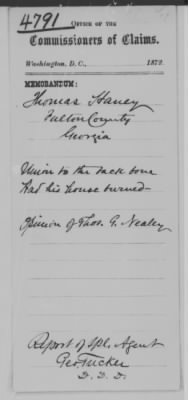 4791
OFFICE OF THE
Commissioners of Claims.
Washington, D. C., 1872.
MEMORANDUM:
Thomas Haney
Fulton County
Georgia
Union to the back bone
Had his house burned—
Opinion of Thos. G. Healey
Report of Spl. Agent
Geo. Tucker
D. D. D.